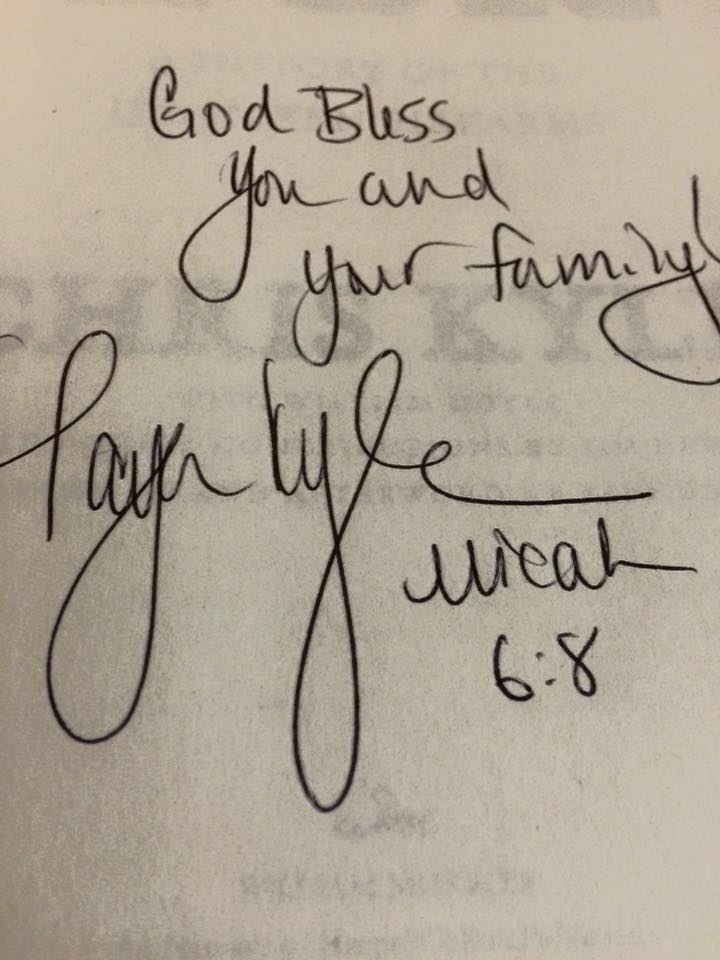 God Bless
you and
your family!
Taya Kyle
Micah
6:8